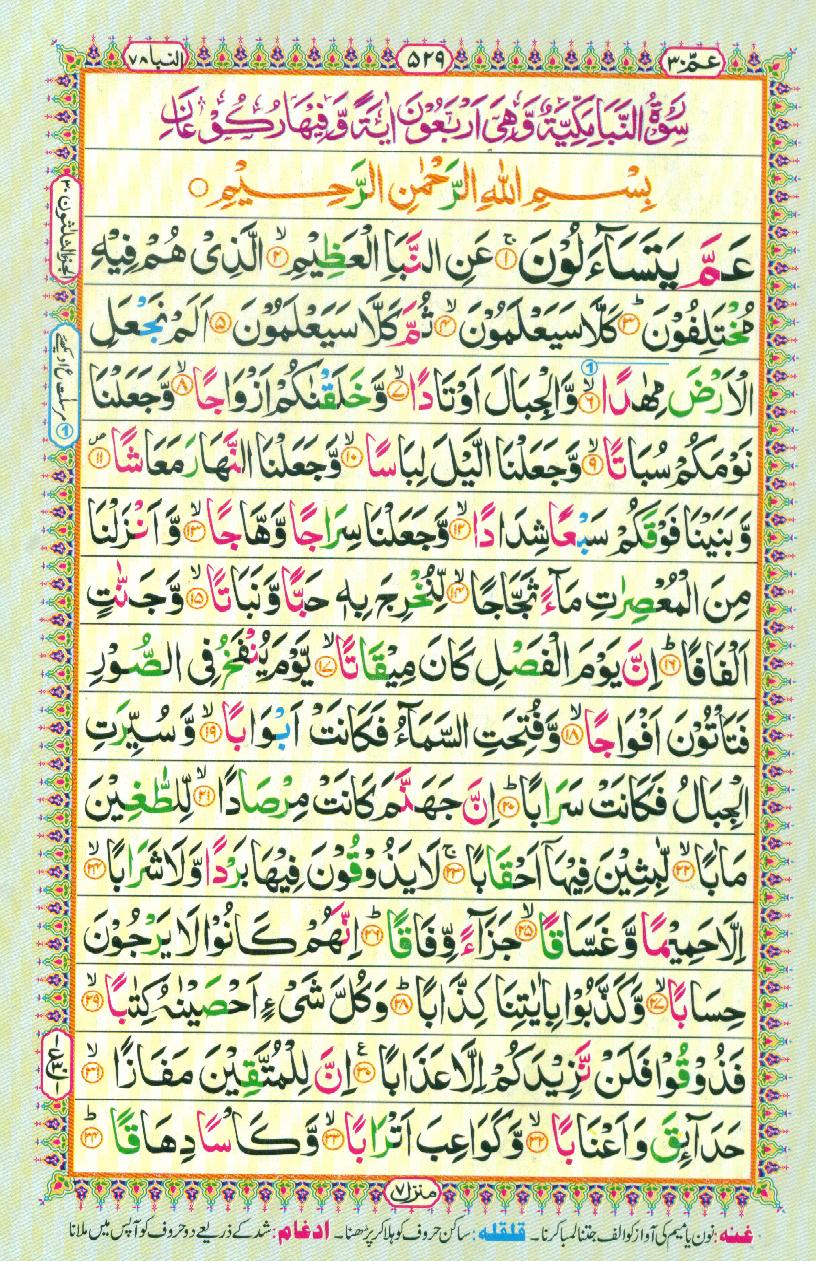 عمّ ۳۰
۵۲۹
النبا ۷۸
سُوْرَةُ النَّبَاِ مَكِّيَّةٌ وَّهِيَ اَرْبَعُوْنَ اٰيَةً وَّفِيْهَا رُكُوْعَانِ
بِسْمِ اللّٰهِ الرَّحْمٰنِ الرَّحِيْمِ ○
عَمَّ يَتَسَآءَلُوْنَ ۚ‏﴿۱﴾ عَنِ النَّبَاِ الْعَظِيْمِ ۙ‏﴿۲﴾ الَّذِیْ هُمْ فِيْهِ
مُخْتَلِفُوْنَ ؕ‏﴿۳﴾ كَلَّا سَيَعْلَمُوْنَ ۙ‏﴿۴﴾ ثُمَّ كَلَّا سَيَعْلَمُوْنَ ‏﴿۵﴾ اَلَمْ نَجْعَلِ
الْاَرْضَ مِهٰدًا ۙ‏﴿۶﴾ وَّالْجِبَالَ اَوْتَادًا ۙ‏﴿۷﴾ وَّخَلَقْنٰكُمْ اَزْوَاجًا ۙ‏﴿۸﴾ وَّجَعَلْنَا
نَوْمَكُمْ سُبَاتًا ۙ‏﴿۹﴾ وَّجَعَلْنَا الَّيْلَ لِبَاسًا ۙ‏﴿۱۰﴾ وَّجَعَلْنَا النَّهَارَ مَعَاشًا ۪‏﴿۱۱﴾
وَّبَنَيْنَا فَوْقَكُمْ سَبْعًا شِدَادًا ۙ‏﴿۱۲﴾ وَّجَعَلْنَا سِرَاجًا وَّهَّاجًا ۙ‏﴿۱۳﴾ وَّاَنْزَلْنَا
مِنَ الْمُعْصِرٰتِ مَآءً ثَجَّاجًا ۙ‏﴿۱۴﴾ لِّنُخْرِجَ بِهٖ حَبًّا وَّنَبَاتًا ۙ‏﴿۱۵﴾ وَّجَنّٰتٍ
اَلْفَافًا ؕ‏﴿۱۶﴾ اِنَّ يَوْمَ الْفَصْلِ كَانَ مِيْقَاتًا ۙ‏﴿۱۷﴾ يَّوْمَ يُنْفَخُ فِی الصُّوْرِ
فَتَاْتُوْنَ اَفْوَاجًا ۙ‏﴿۱۸﴾ وَّفُتِحَتِ السَّمَآءُ فَكَانَتْ اَبْوَابًا ۙ‏﴿۱۹﴾ وَّسُيِّرَتِ
الْجِبَالُ فَكَانَتْ سَرَابًا ؕ‏﴿۲۰﴾ اِنَّ جَهَنَّمَ كَانَتْ مِرْصَادًا ۙ‏﴿۲۱﴾ لِّلطّٰغِيْنَ
مَاٰبًا ۙ‏﴿۲۲﴾ لّٰبِثِيْنَ فِيْهَاۤ اَحْقَابًا ۚ‏﴿۲۳﴾ لَا يَذُوْقُوْنَ فِيْهَا بَرْدًا وَّلَا شَرَابًا ۙ‏﴿۲۴﴾
اِلَّا حَمِيْمًا وَّغَسَّاقًا ۙ‏﴿۲۵﴾ جَزَآءً وِّفَاقًا ؕ‏﴿۲۶﴾ اِنَّهُمْ كَانُوْا لَا يَرْجُوْنَ
حِسَابًا ۙ‏﴿۲۷﴾ وَّكَذَّبُوْا بِاٰيٰتِنَا كِذَّابًا ؕ‏﴿۲۸﴾ وَكُلَّ شَیْءٍ اَحْصَيْنٰهُ كِتٰبًا ۙ‏﴿۲۹﴾
فَذُوْقُوْا فَلَنْ نَّزِيْدَكُمْ اِلَّا عَذَابًا ‏﴿۳۰﴾ اِنَّ لِلْمُتَّقِيْنَ مَفَازًا ۙ‏﴿۳۱﴾
حَدَآئِقَ وَاَعْنَابًا ۙ‏﴿۳۲﴾ وَّكَوَاعِبَ اَتْرَابًا ۙ‏﴿۳۳﴾ وَّكَاْسًا دِهَاقًا ؕ‏﴿۳۴﴾
الجزء الثلثون ۳۰
منزل ۷
غنہ: نون یا میم کی آواز کو الف جتنا لمبا کرنا۔ قلقلہ: ساکن حروف کو ہلا کر پڑھنا۔ ادغام: شد کے ذریعے دو حروف کو آپس میں ملانا